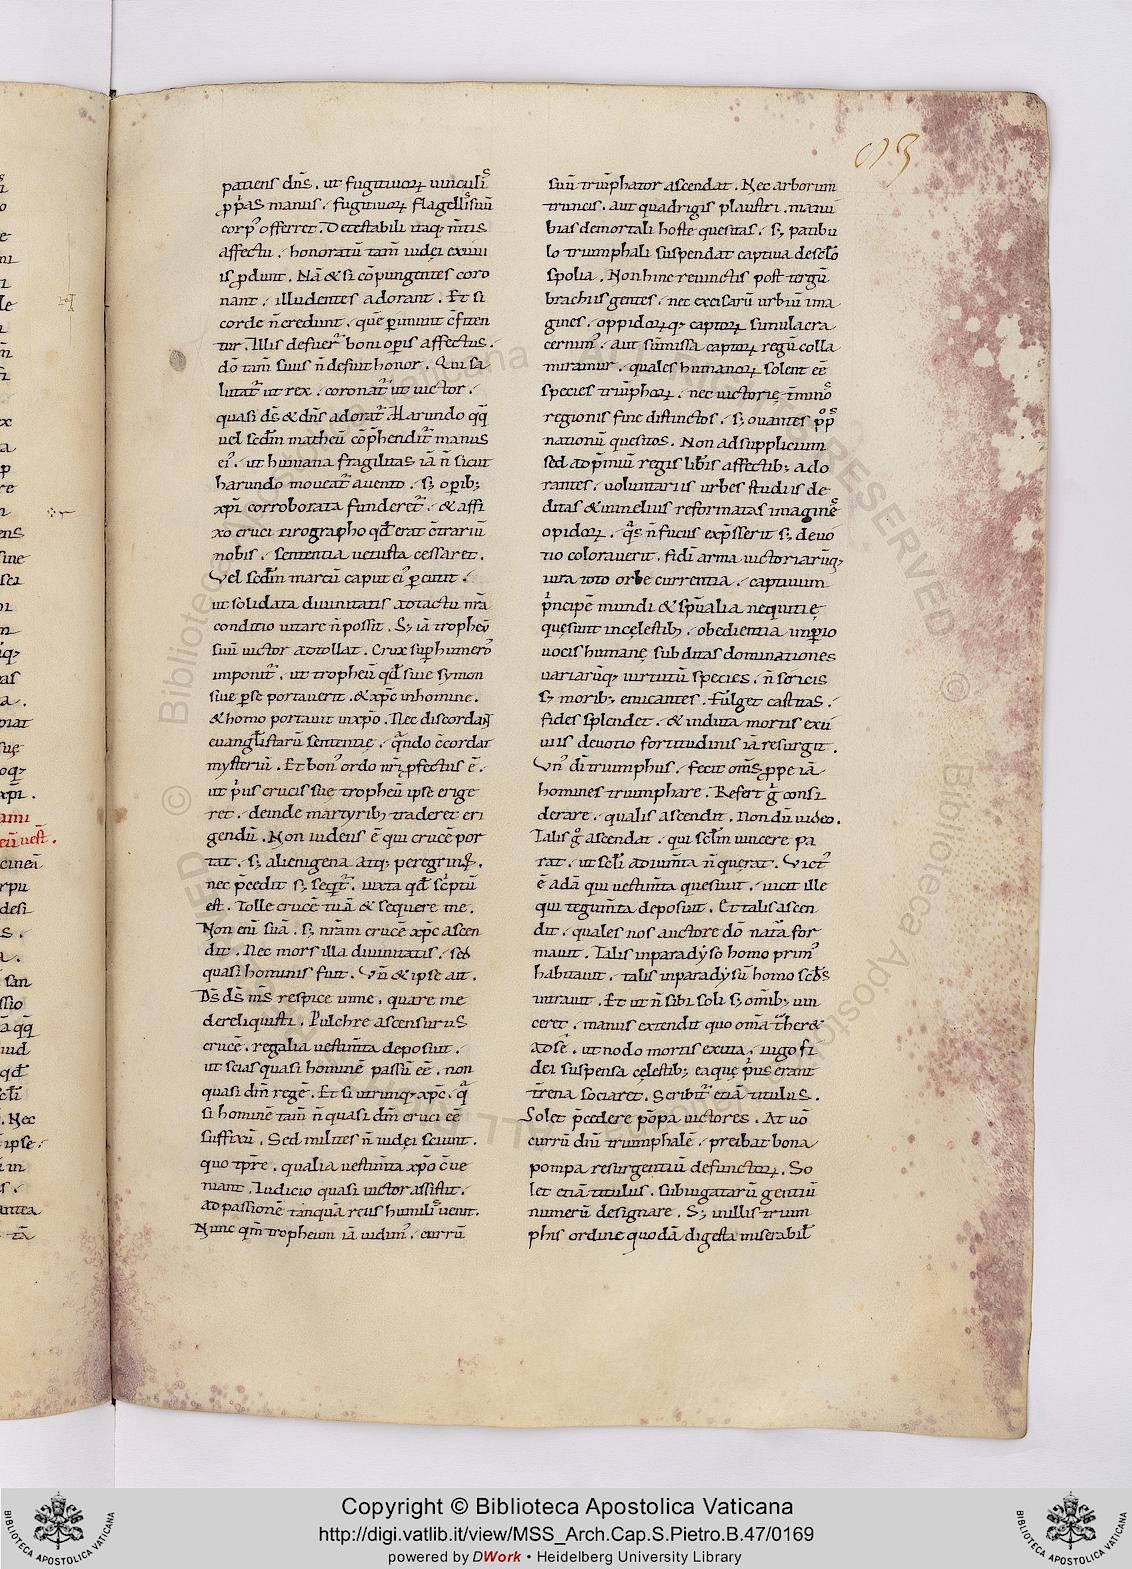 93
patiens dn̄s . ut fugitiuoꝝ uinculis
ꝓp̄as manus . fugitiuoꝝ flagellis suū
corp' offerret . Detestabili itaq; m̄tis
affectu . honoratū tam̄ iudei exiui
is ꝓdunt . Nā & si cōpungentes coro
nant . illudentes adorant . Et si
corde n̄ credunt . quē ꝑimunt c̄fiten
tur . Illis defuer̄ boni oꝑis affectus .
dō tam̄ suus n̄ defuit honor . Qui sa
lutat̄ ut rex . coronat̄ ut uictor .
quasi ds̄ & dn̄s adorat̄ . Harundo qq̄
uel scd̄m matheū cōp̄hendit̄ manus
ei' . ut humana fragilitas iā n̄ sicut
harundo moueat̄ a uento . s; oꝑib;
xp̄i corroborata funderet̄ . & affi
xo cruci cirographo qd̄ erat c̄trariū
nobis . sententia uetusta cessaret .
Vel scd̄m marcū caput ei' ꝑcutit .
ut solidata diuinitatis adtactu nr̄a
conditio nutare n̄ possit . S; iā tropheū
suū uictor adtollat . Crux suꝑ humero'
imponit̄ . ut tropheū qd̄ siue symon
siue ꝑ se portauerit . & xp̄c in homine .
& homo portauit in xp̄o . Nec discordant
euangl̄istarū sententię . q̄ndo c̄cordat
mysteriū . Et bon' ordo nr̄i ꝓfectus ē .
ut p̄us crucis suę tropheū ipse erige
ret . deinde martyrib; traderet eri
gendū . Non iudeus ē qui crucē por
tat . s; alienigena atq; peregrinus .
nec p̄cedit s; seqt̄ . iuxta qd̄ sc̄ptū
est . Tolle crucē tuā & sequere me .
Non eni suā . s; nr̄am crucē xp̄c ascen
dit . Nec mors illa diuinitatis . sed
quasi hominis fuit . Vn̄ & ipse ait .
Ds̄ ds̄ ms̄ respice in me . quare me
dereliquisti . Pulchre ascensurus
crucē . regalia uestim̄ta deposuit .
ut scias quasi hominē passū eē . non
quasi dm̄ regē . Et si utrunq; xp̄c . q̄
si hominē tam̄ n̄ quasi dm̄ cruci eē
suffixū . Sed milites n̄ iudei sciunt .
quo tp̄re . qualia uestim̄ta xp̄o c̄ue
niant . Iudicio quasi uictor assistit .
ad passionē tanquā reus humilis uenit .
Nunc qm̄ tropheum iā uidim' . currū
suū triūphator ascendat . Nec arborum
truncis . aut quadrigis plaustri . manu
bias de mortali hoste quesitas . s; patibu
lo triumphali suspendat captiua de scl̄o
spolia . Non hinc reuinctis post tergū
brachiis gentes . nec excisarū urbiū ima
gines . oppidoꝝq; captoꝝ simulacra
cernim' . aut sūmissa captoꝝ regū colla
miramur . quales humanoꝝ solent eē
species triūphoꝝ . nec uictorię t̄mino
regionis fine distinctos . s; ouantes pp̄los
nationū quesitos . Non ad supplicium
sed ad p̄miū regis lib̄is affectib; ado
rantes . uoluntariis urbes studiis de
ditas & in melius reformatas imagine
opidoꝝ . q̄s n̄ fucus exp̄sserit s; deuo
tio colorauerit . fidi arma uictoriarūq;
iura toto orbe currentia . captiuum
p̄ncipē mundi & spūalia nequitię
quę sunt in cęlestib; . obedientia imꝑio
uocis humanę subditas dominationes
uariarūq; uirtutū species . n̄ sericis
s; morib; emicantes . Fulget castitas .
fides splendet . & induta mortis exu
uiis deuotio fortitudinis iā resurgit .
Vn' di triumphus . fecit om̄s ꝓpe iā
homines triumphare . Refert g̊ consi
derare . qualis ascendit . Non dū uideo .
Talis g̊ ascendat . qui scl̄m uincere pa
rat . ut scl̄i adium̄ta n̄ querat . Vict'
ē adā qui uestim̄ta quesiuit . uicit ille
qui tegum̄ta deposuit . Et talis ascen
dit . quales nos auctore dō nat̄a for
mauit . Talis in paradyso homo prim'
habitauit . talis in paradysū homo scd̄s
intrauit . Et ut n̄ sibi soli s; om̄ib; uin
ceret . manus extendit quo om̄a t̄her&
ad sē . ut nodo mortis exuta . iugo fi
dei suspensa cęlestib; eaquę p̄us erant
t̄rena sociaret . Scribit̄ etiā titulus .
Solet p̄cedere pōpa uictores . At uō
currū diū triumphalē . preibat bona
pompa resurgentiū defunctoꝝ . So
let etiā titulus . subiugatarū gentiū
numerū designare . S; in illis trium
phis ordine quodā digesta miserabil̄
Copyright © Biblioteca Apostolica Vaticana
http://digi.vatlib.it/view/MSS_Arch.Cap.S.Pietro.B.47/0169
powered by DWork • Heidelberg University Library